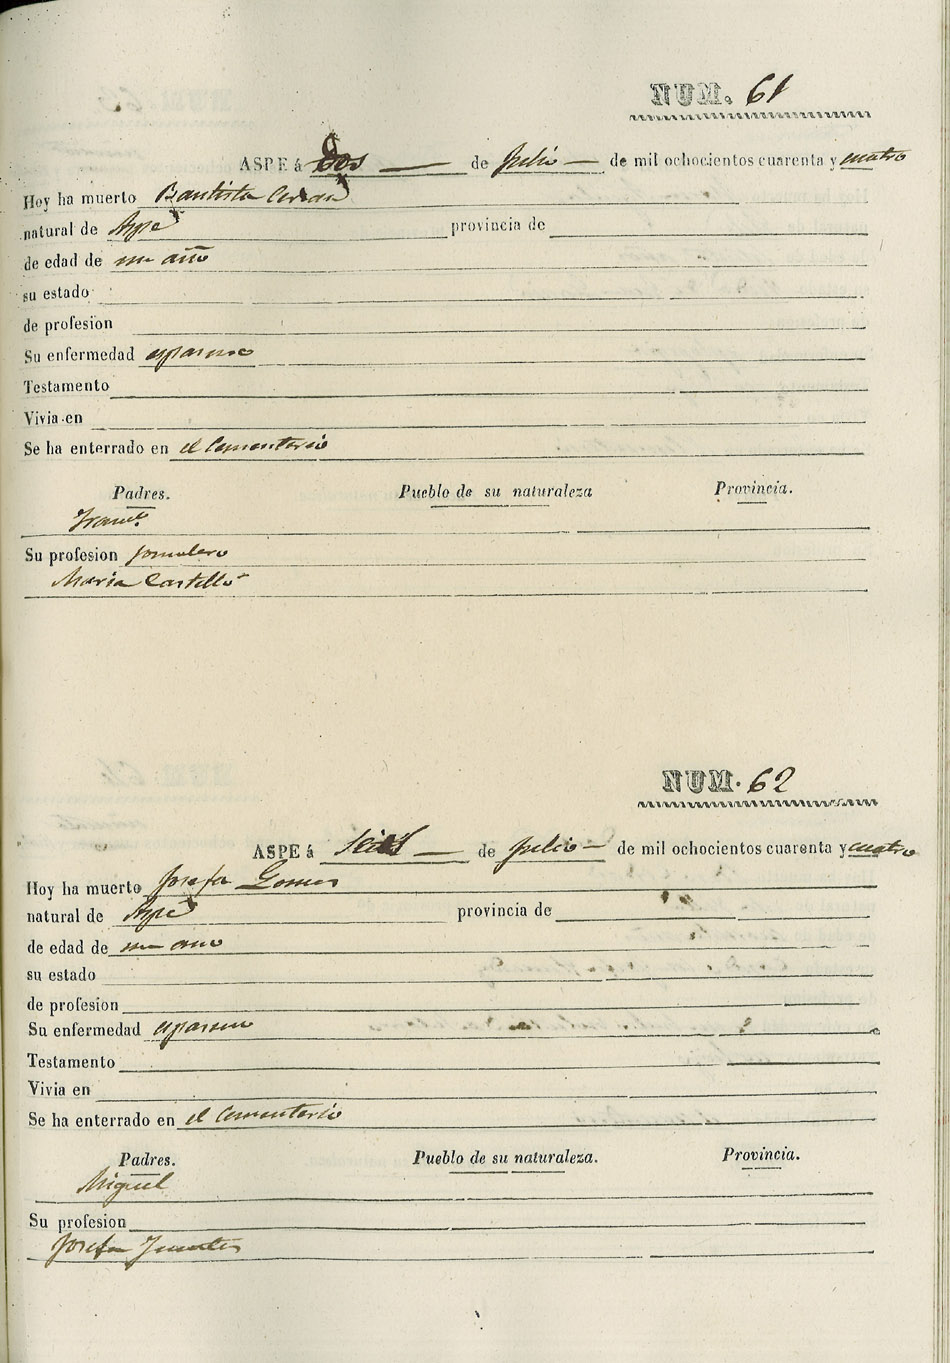 NUM. 61
ASPE á dos de Julio de mil ochocientos cuarenta y cuatro
Hoy ha muerto Bautista
natural de Aspe provincia de
de edad de un año
su estado
de profesion
Su enfermedad
Testamento
Vivia en
Se ha enterrado en el Cementerio
Padres. Pueblo de su naturaleza Provincia.
Franco.
Su profesion jornalero
Maria Castelló
NUM. 62
ASPE á Seis de Julio de mil ochocientos cuarenta y cuatro
Hoy ha muerto Josefa Gomes
natural de Aspe provincia de
de edad de un ano
su estado
de profesion
Su enfermedad
Testamento
Vivia en
Se ha enterrado en el Cementerio
Padres. Pueblo de su naturaleza. Provincia.
Miguel
Su profesion
Josefa